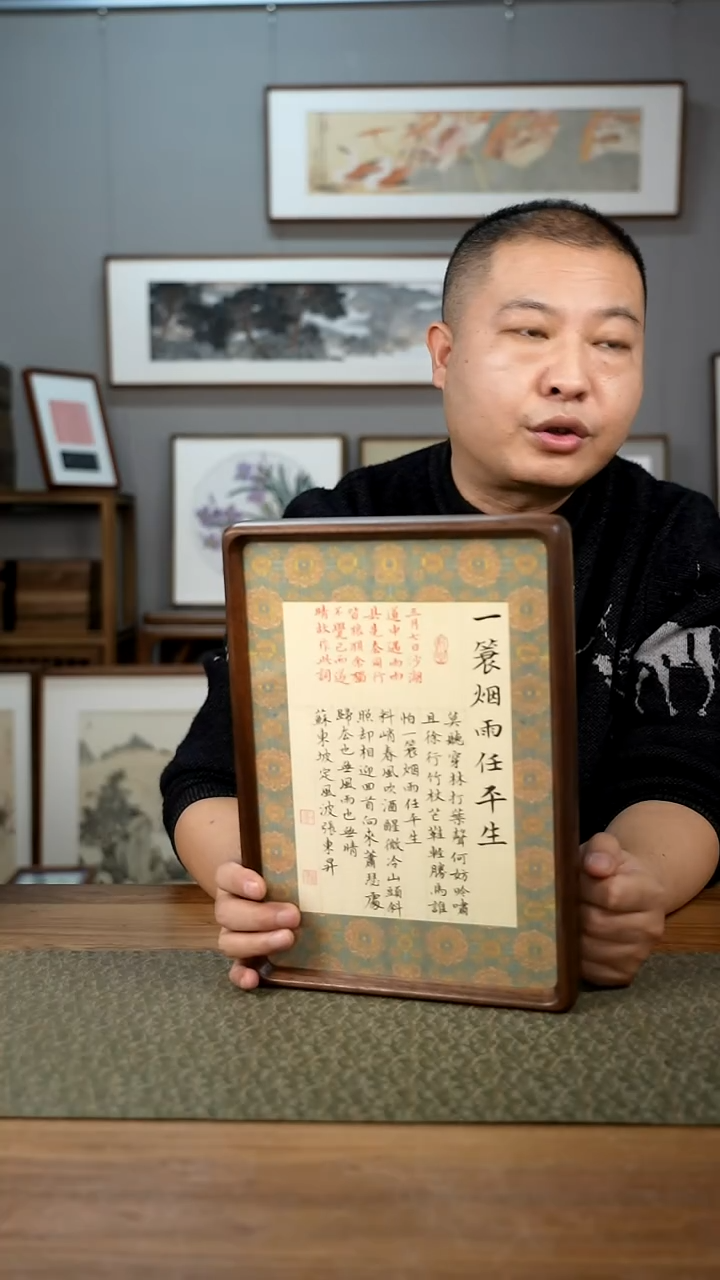 一蓑烟雨任平生
三月七日沙湖
道中遇雨雨
具先去同行
皆狼狽余獨
不覺已而遂
晴故作此詞
莫聽穿林打葉聲何妨吟嘯
且徐行竹杖芒鞋輕勝馬誰
怕一蓑烟雨任平生
料峭春風吹酒醒微冷山頭斜
照却相迎回首向來蕭瑟處
歸去也無風雨也無晴
蘇東坡定風波張東昇